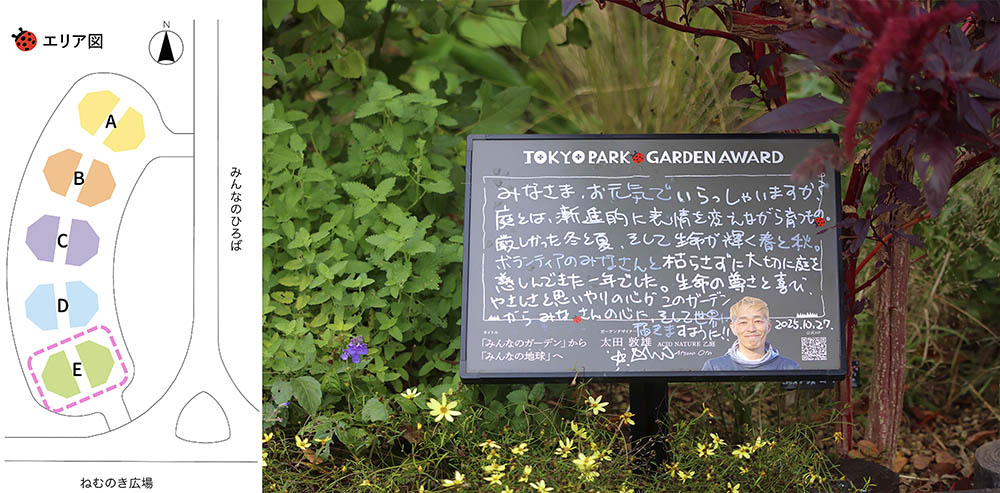 エリア図
N
A
B
C
D
E
みんなのひろば
ねむのき広場
TOKYO PARK GARDEN AWARD
みなさま、お元気でいらっしゃいますか
庭とは、漸進的に表情を変えながら育つもの。
厳しかった冬と夏、そして生命が輝く春と秋。
ボランティアのみなさんと枯らさずに大切に庭を
慈しんできた一年でした。生命の尊さと喜び、
やさしさと思いやりの心がこのガーデン
からみなさんの心に、そして世界に
届きますように!!
2025.10.27.
タイトル
「みんなのガーデン」から
「みんなの地球」へ
ガーデンデザイナー
太田 敦雄 ACID NATURE 乙庭
Atsuo Ota